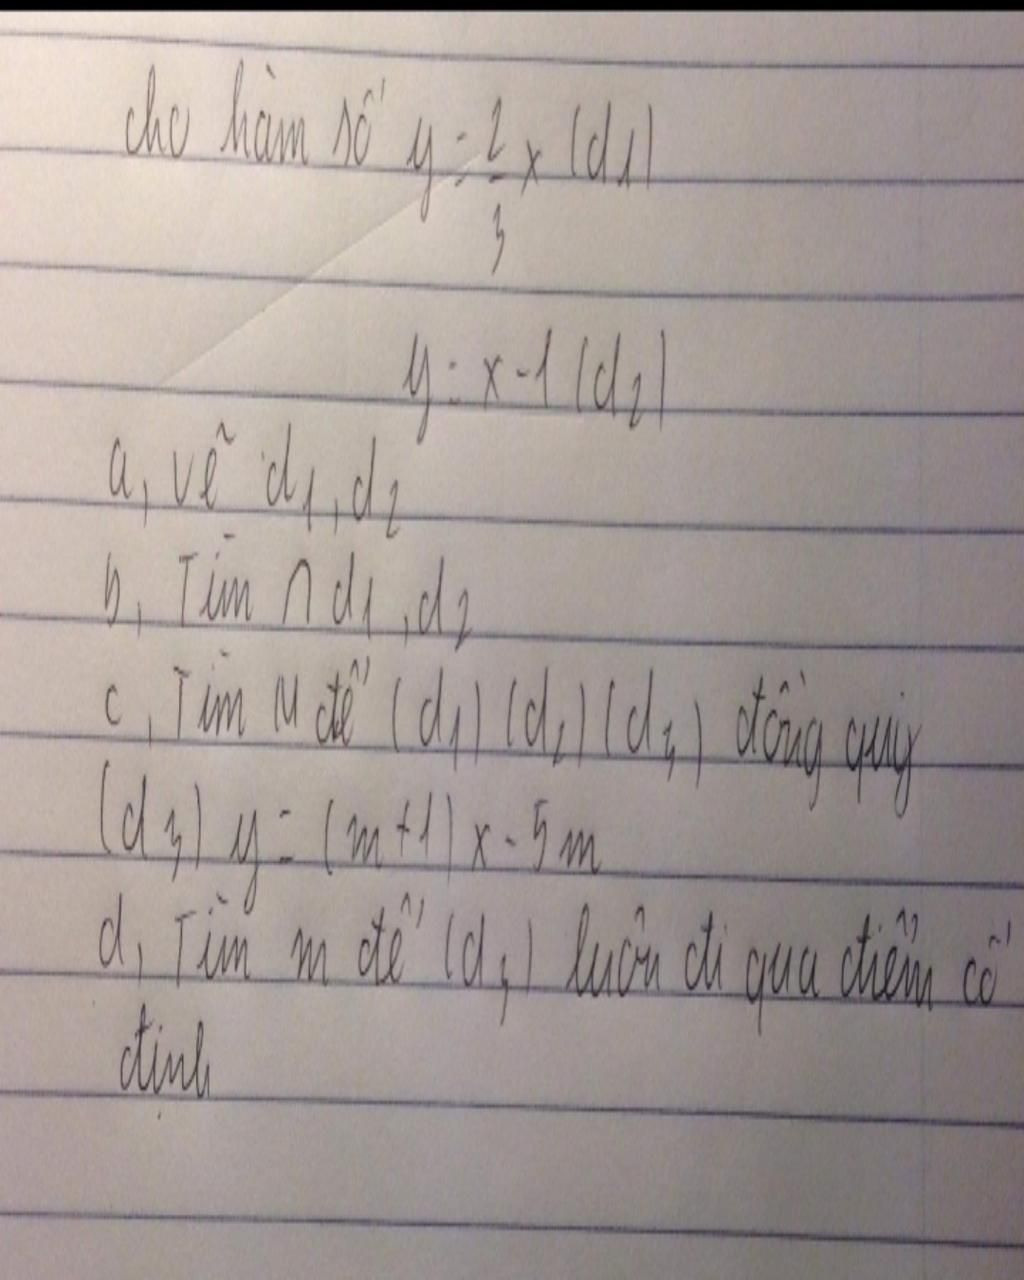 cho hàm số y = 2/3 x (d1)
y = x - 1 (d2)
a, vẽ d1, d2
b, Tìm ∩ d1, d2
c, Tìm M để (d1) (d2) (d3) đồng quy
(d3) y = (m+1) x - 5m
d, Tìm m để (d3) luôn đi qua điểm cố
định